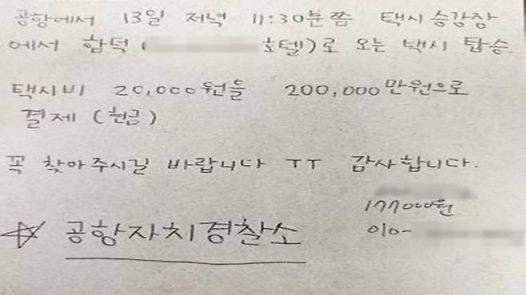 공항에서 13일 저녁 11:30분쯤 택시 승강장
에서 함덕( 호텔)로 오는 택시 탑승
택시비 20,000원을 200,000만원으로
결제 (현금)
꼭 찾아주시길 바랍니다 ㅜㅜ 감사합니다.
177000원
☆ 공항자치경찰소 010-